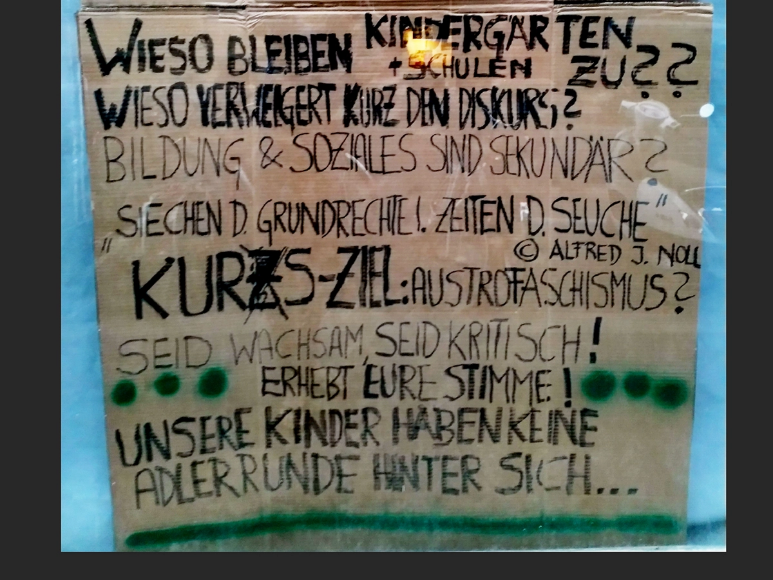 WIESO BLEIBEN KINDERGÄRTEN
+ SCHULEN ZU??
WIESO VERWEIGERT KURZ DEN DISKURS?
BILDUNG & SOZIALES SIND SEKUNDÄR?
„SIECHEN D. GRUNDRECHTE I. ZEITEN D. SEUCHE"
© ALFRED J. NOLL
KURZS-ZIEL: AUSTROFASCHISMUS?
SEID WACHSAM, SEID KRITISCH!
ERHEBT EURE STIMME!
UNSERE KINDER HABEN KEINE
ADLERRUNDE HINTER SICH...